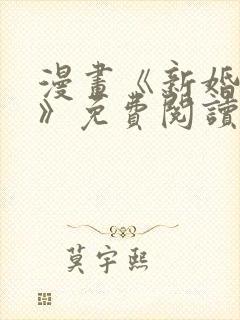 漫畫《新婚
》免費閱讀
莫宇熙